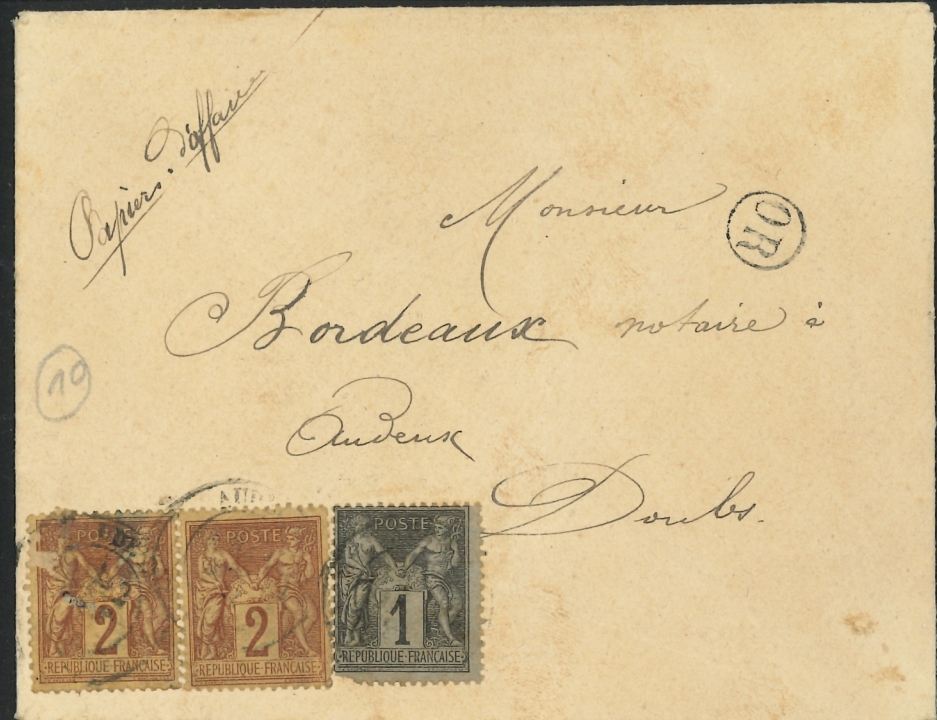 Papiers. d'affaires
Monsieur
OR
Bordeaux notaire à
Audeux
Doubs.
19
AUD
POSTE
2
REPUBLIQUE FRANÇAISE
POSTE
2
REPUBLIQUE FRANÇAISE
POSTE
1
REPUBLIQUE FRANÇAISE